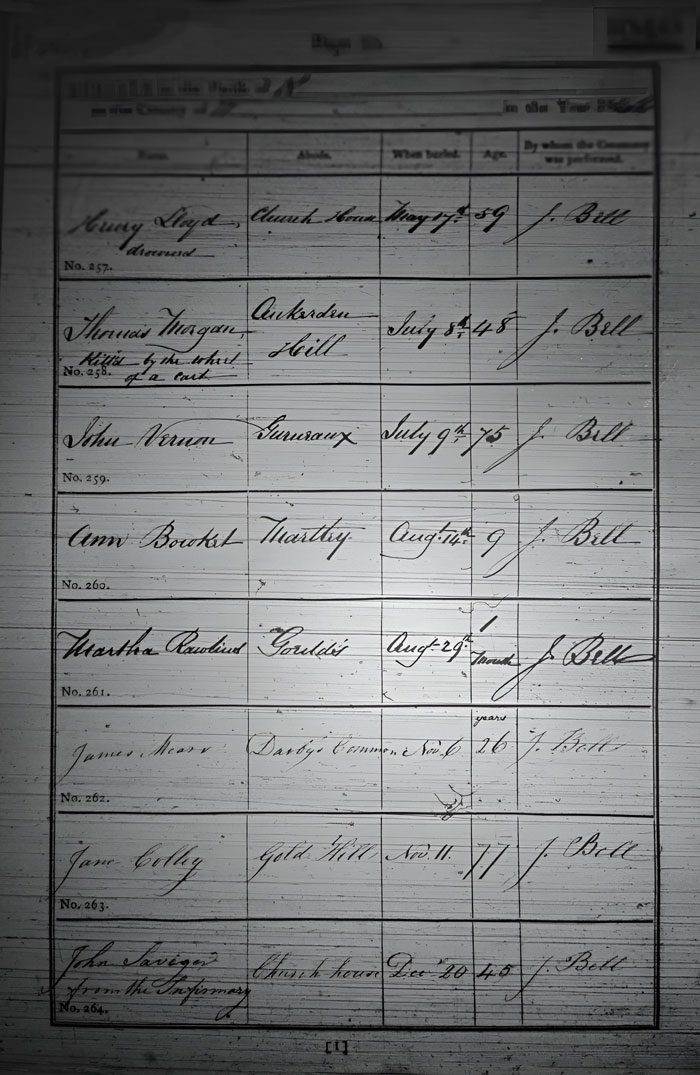 in the Year
Name. Abode. When buried. Age. By whom the Ceremony
was performed.
Henry Lloyd, Church House May 17th 59 J. Bell
drowned
No. 257.
Ankerden
Thomas Morgan, July 8th 48 J. Bell
Hill
Killed by the wheel
No. 258.
of a cart
John Vernon July 9th 75 J. Bell
No. 259.
Ann Bowket Martley Augt. 14th 9 J. Bell
No. 260.
1
Martha Rawlins Gould's Augt. 29th J. Bell
Month
No. 261.
years
James Darby's Common Nov. 6 26 J. Bell
No. 262.
Jane Colley Gold Hill Nov. 11. 77 J. Bell
No. 263.
John Church house Dec 20 45 J. Bell
from the Infirmary
No. 264.
[1]